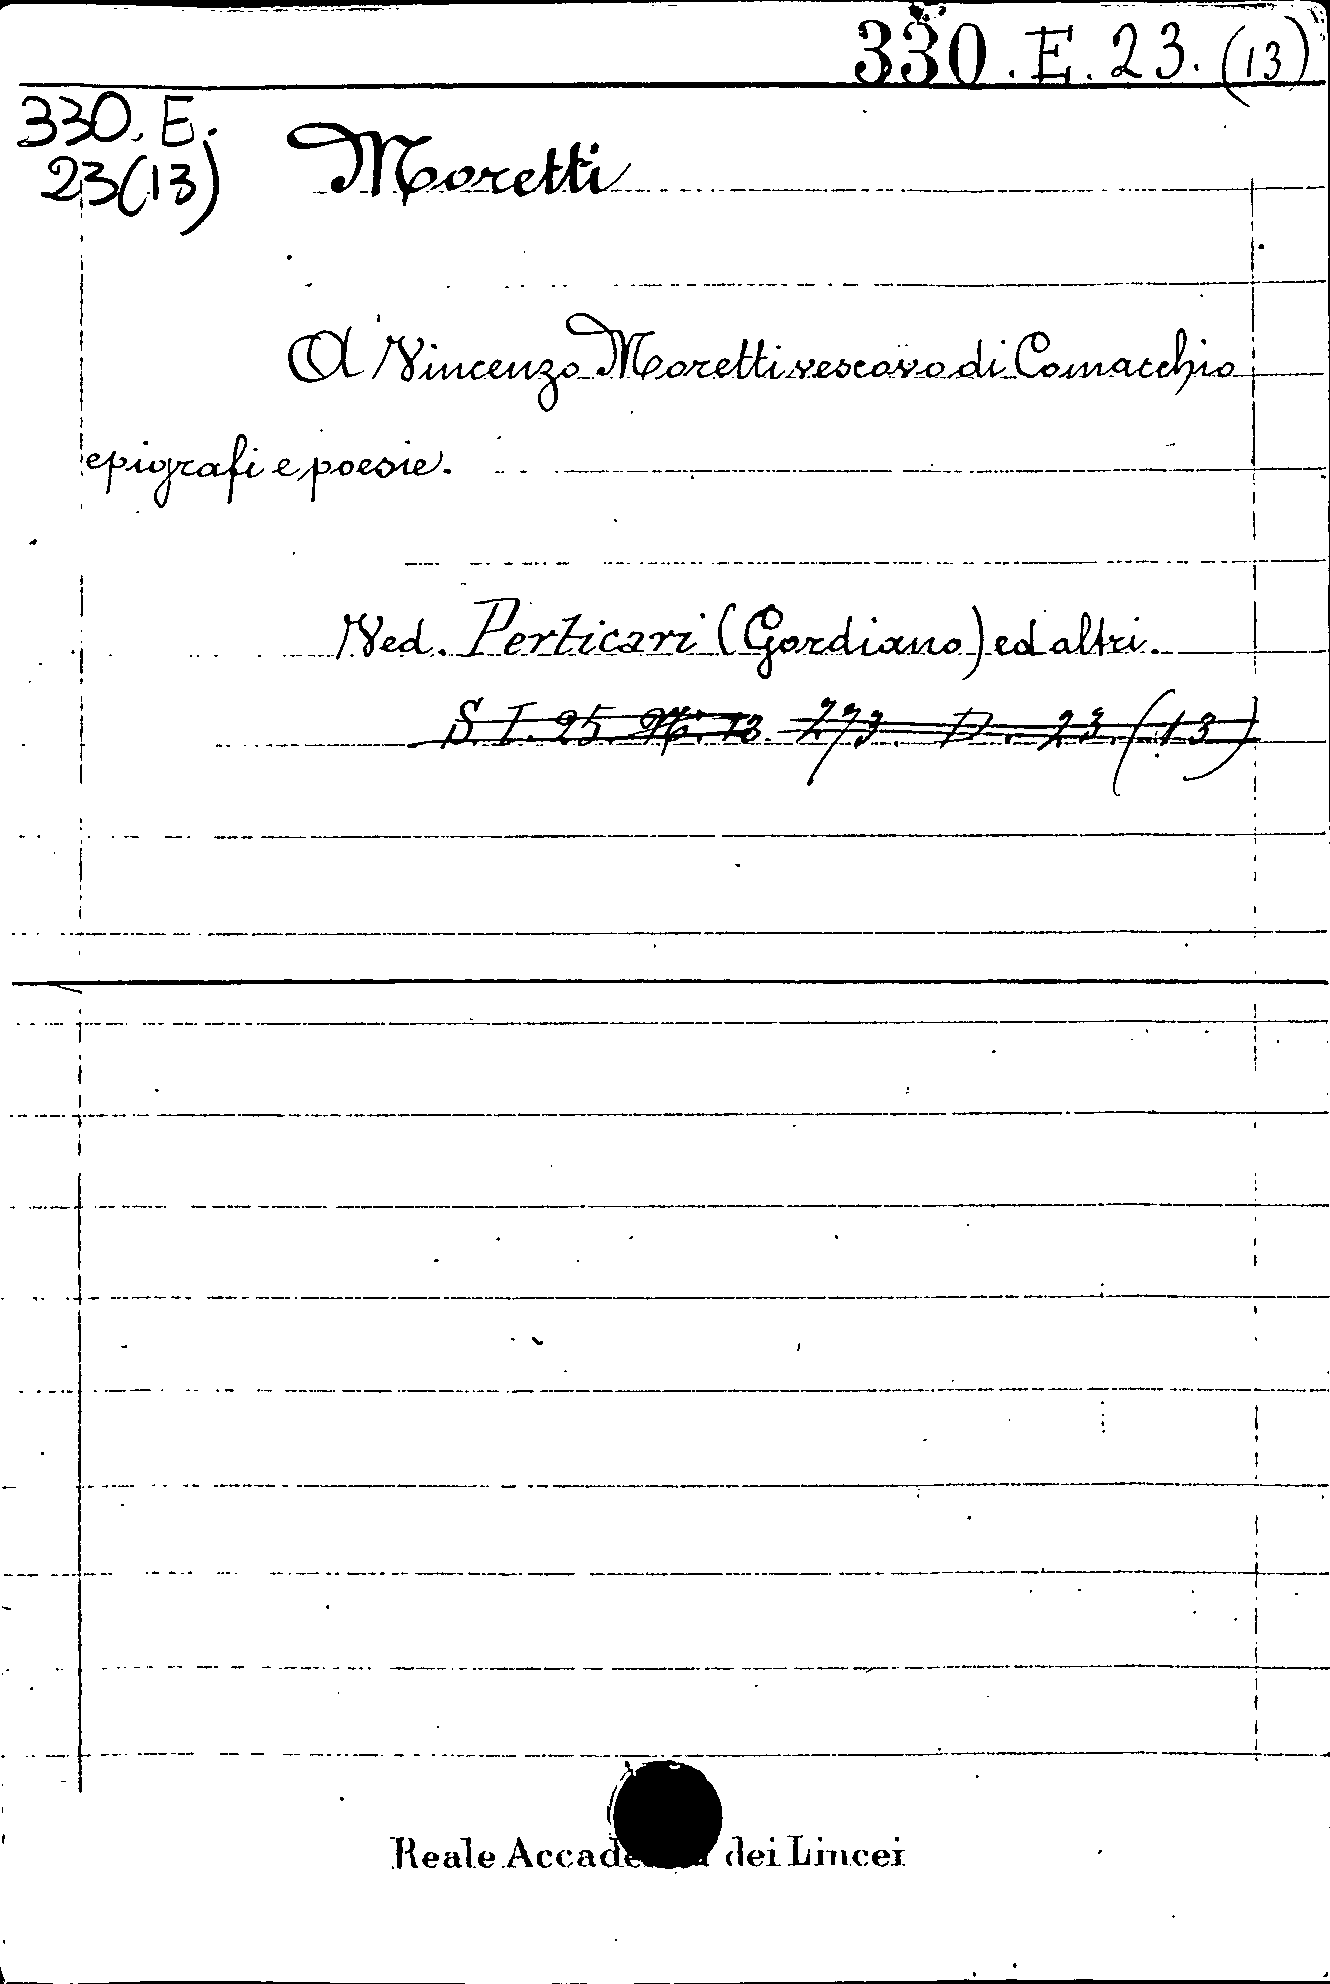 330.E.23.(13)
330.E.
23(13)
Moretti
A Vincenzo Moretti vescovo di Comacchio
epigrafi e poesie.
Ved. Perticari (Gordiano) ed altri.
S. I. 25. 273. D. 23. (13)
Reale Accade dei Lincei